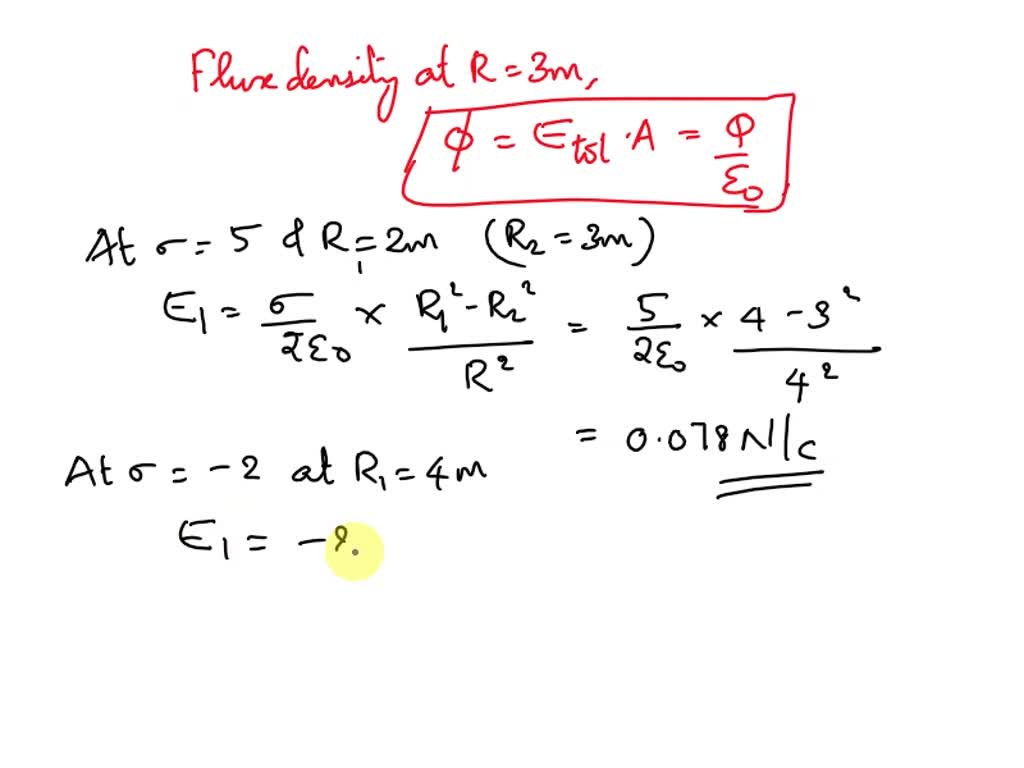 Flux density at R = 3m,
ϕ = E_tol · A = φ/ε₀
At σ = 5 & R₁ = 2m (R₂ = 3m)
E₁ = σ/2ε₀ × (R₁² - R₂²)/R² = 5/2ε₀ × (4 - 3²)/4²
= 0.078 N/C
At σ = -2 at R₁ = 4m
E₁ = -